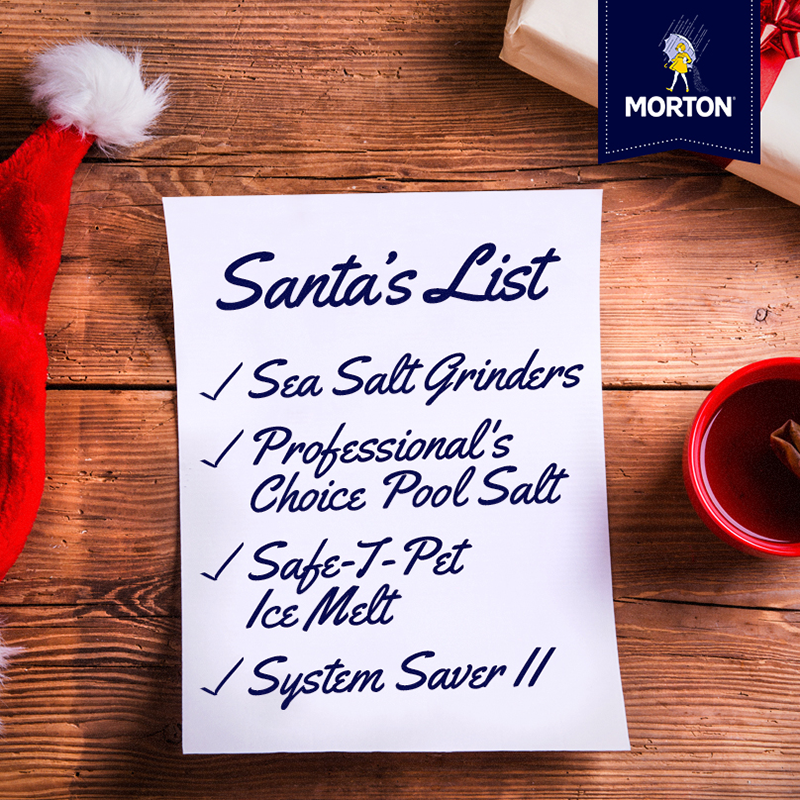 MORTON
Santa's List
✓ Sea Salt Grinders
✓ Professional's
Choice Pool Salt
✓ Safe-T-Pet
Ice Melt
✓ System Saver II